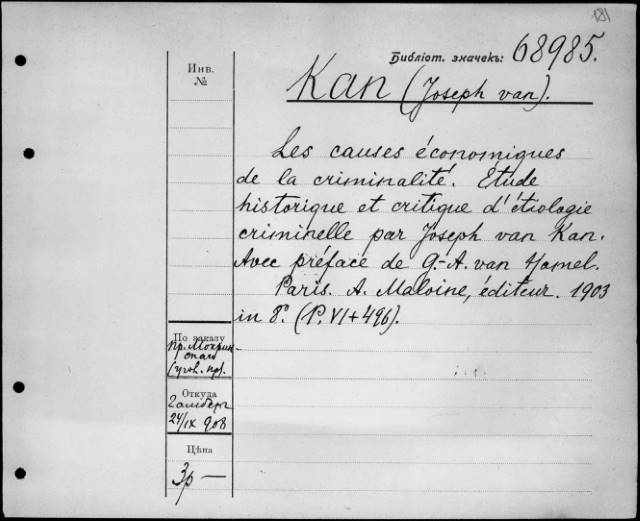 181
Библіот. значекъ: 68985.
Инв.
№
Kan (Joseph van).
Les causes économiques
de la criminalité. Étude
historique et critique d'étiologie
criminelle par Joseph van Kan.
Avec préface de G.-A. van Hamel.
Paris. A. Maloine, éditeur. 1903
in 8°. (P. VI+496).
По заказу
пр. Мокрин-
скаго
(угол. пр).
Откуда
24/IX 908
Цѣна
3р —